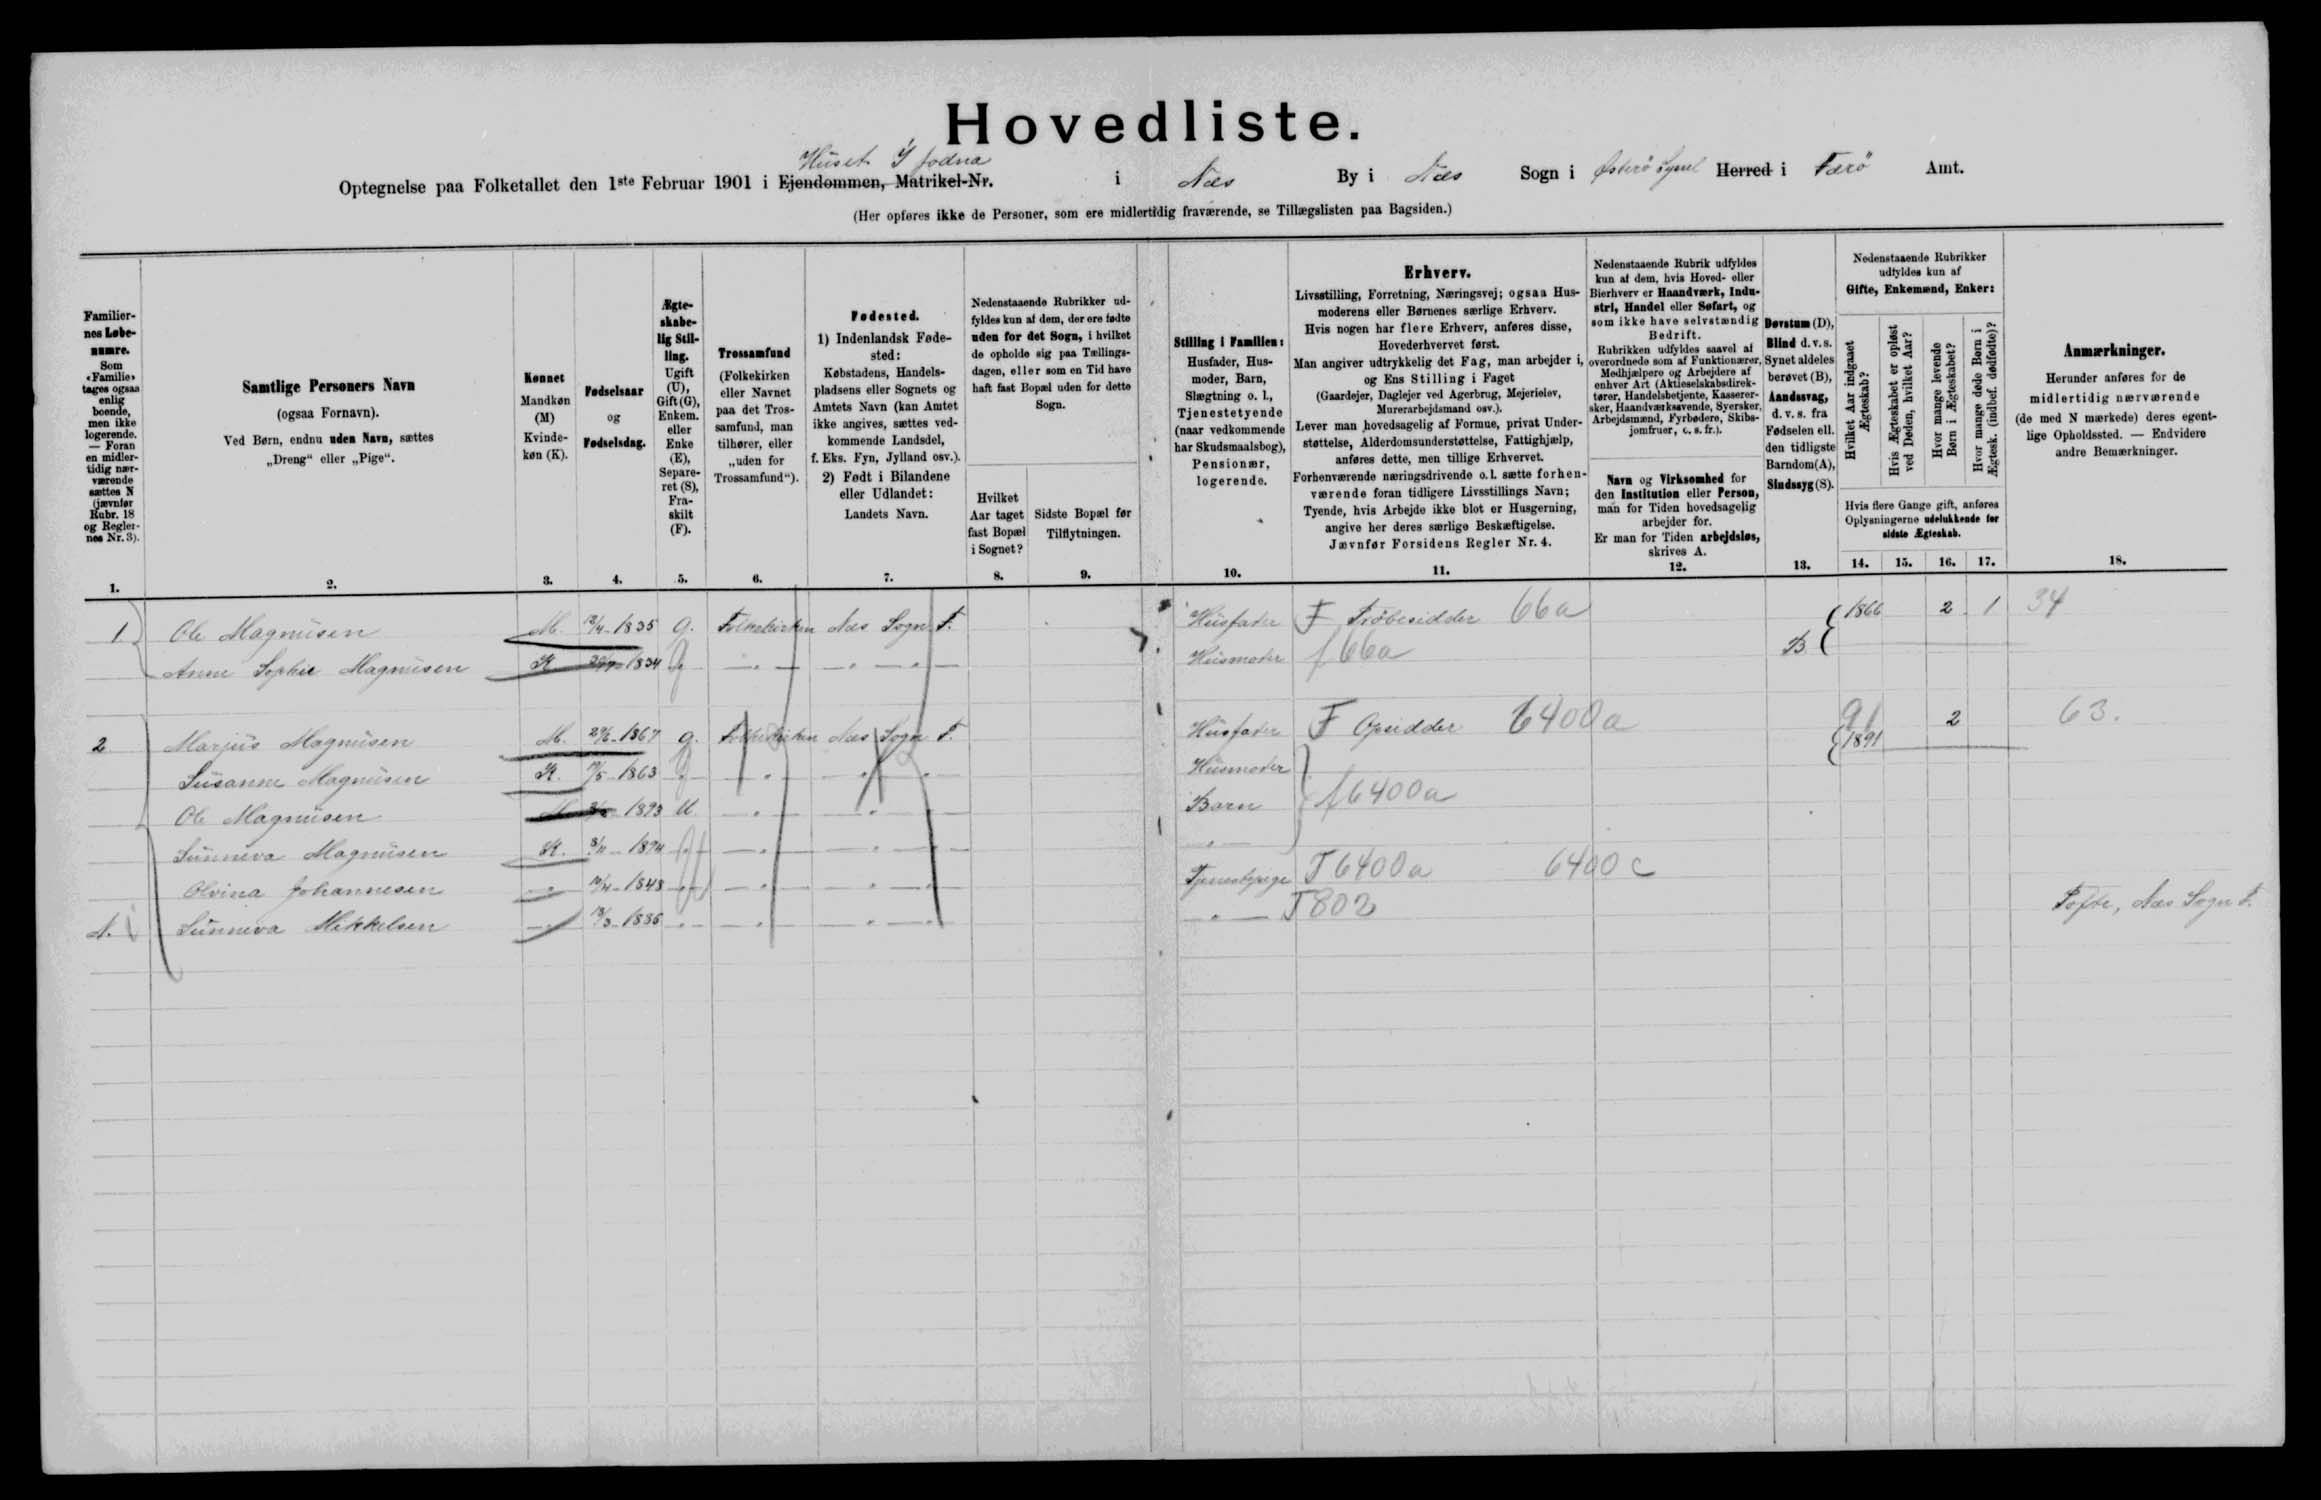 Hovedliste.
Huset Y Jodna
Optegnelse paa Folketallet den 1ste Februar 1901 i Ejendommen, Matrikel-Nr. i Næs By i Næs Sogn i Østerø Syssel Herred i Færø Amt.
(Her opføres ikke de Personer, som ere midlertidig fraværende, se Tillægslisten paa Bagsiden.)
Familiernes Løbenumre.
Som «Familie» tages ogsaa enlig boende, men ikke logerende. — Foran en midlertidig nærværende sættes N (jævnfør Rubr. 18 og Reglernes Nr. 3).
1.
Samtlige Personers Navn
(ogsaa Fornavn).
Ved Børn, endnu uden Navn, sættes
„Dreng“ eller „Pige“.
2.
Kønnet
Mandkøn (M)
Kvindekøn (K).
3.
Fødselsaar
og
Fødselsdag.
4.
Ægteskabelig Stilling.
Ugift (U), Gift (G), Enkem. eller Enke (E), Separeret (S), Fraskilt (F).
5.
Trossamfund
(Folkekirken eller Navnet paa det Trossamfund, man tilhører, eller „uden for Trossamfund“).
6.
Fødested.
1) Indenlandsk Fødested:
Købstadens, Handelspladsens eller Sognets og Amtets Navn (kan Amtet ikke angives, sættes vedkommende Landsdel, f. Eks. Fyn, Jylland osv.).
2) Født i Bilandene eller Udlandet:
Landets Navn.
7.
Nedenstaaende Rubrikker udfyldes kun af dem, der ere fødte uden for det Sogn, i hvilket de opholde sig paa Tællingsdagen, eller som en Tid have haft fast Bopæl uden for dette Sogn.
Hvilket Aar taget fast Bopæl i Sognet?
8.
Sidste Bopæl før Tilflytningen.
9.
Stilling i Familien:
Husfader, Husmoder, Barn, Slægtning o. l., Tjenestetyende (naar vedkommende har Skudsmaalsbog), Pensionær, logerende.
10.
Erhverv.
Livsstilling, Forretning, Næringsvej; ogsaa Husmoderens eller Børnenes særlige Erhverv.
Hvis nogen har flere Erhverv, anføres disse, Hovederhvervet først.
Man angiver udtrykkelig det Fag, man arbejder i, og Ens Stilling i Faget
(Gaardejer, Daglejer ved Agerbrug, Mejerielev, Murerarbejdsmand osv.).
Lever man hovedsagelig af Formue, privat Understøttelse, Alderdomsunderstøttelse, Fattighjælp, anføres dette, men tillige Erhvervet.
Forhenværende næringsdrivende o. l. sætte forhenværende foran tidligere Livsstillings Navn;
Tyende, hvis Arbejde ikke blot er Husgerning, angive her deres særlige Beskæftigelse.
Jævnfør Forsidens Regler Nr. 4.
11.
Nedenstaaende Rubrik udfyldes kun af dem, hvis Hoved- eller Bierhverv er Haandværk, Industri, Handel eller Søfart, og som ikke have selvstændig Bedrift.
Rubrikken udfyldes saavel af overordnede som af Funktionærer, Medhjælpere og Arbejdere af enhver Art (Aktieselskabsdirektører, Handelsbetjente, Kasserersker, Haandværksvende, Syersker, Arbejdsmænd, Fyrbødere, Skibsjomfruer, o. s. fr.).
Navn og Virksomhed for den Institution eller Person, man for Tiden hovedsagelig arbejder for.
Er man for Tiden arbejdsløs, skrives A.
12.
Døvstum (D), Blind d. v. s. Synet aldeles berøvet (B), Aandssvag, d. v. s. fra Fødselen ell. den tidligste Barndom (A), Sindssyg (S).
13.
Nedenstaaende Rubrikker udfyldes kun af
Gifte, Enkemænd, Enker:
Hvilket Aar indgaaet Ægteskab?
Hvis Ægteskabet er opløst ved Døden, hvilket Aar?
Hvor mange levende Børn i Ægteskabet?
Hvor mange døde Børn i Ægtesk. (indbef. dødfødte)?
Hvis flere Gange gift, anføres Oplysningerne udelukkende for sidste Ægteskab.
14. 15. 16. 17.
Anmærkninger.
Herunder anføres for de midlertidig nærværende (de med N mærkede) deres egentlige Opholdssted. — Endvidere andre Bemærkninger.
18.
1 Ole Magnusen M. 1835 g. Folkekirken Næs Sogn F. Husfader F Frøbesidder 66a 1866 2 1 34
Anne Sophie Magnusen K 1834 Husmoder f 66a B
2 Marjus Magnusen M. 1867 g. Folkekirken Næs Sogn F. Husfader F Opsidder 6400a 91 2 63.
Susanne Magnusen K. 1863 Husmoder 1891
Ole Magnusen 1893 U Barn f 6400a
Sunneva Magnusen K. 1894
Olvina Johannesen 1848 Tjenestepige T 6400a 6400c
N. Sunneva Mikkelsen 1886 T802 Tofte, Næs Sogn F.